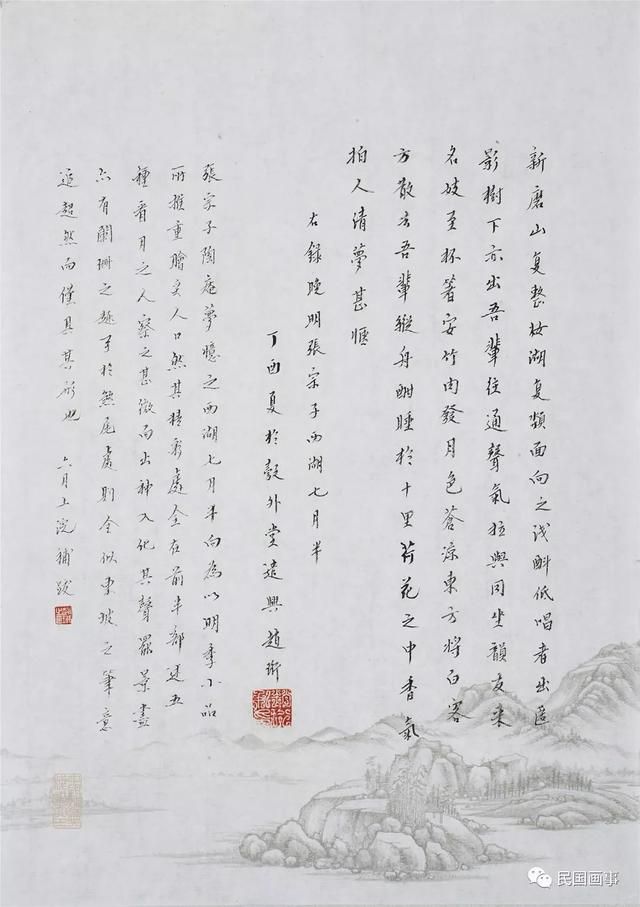 新磨山复整妝湖复颒面向之淺斟低唱者出匿
影樹下亦出吾輩往通聲氣拉與同坐韻友来
名妓至杯箸安竹肉發月色蒼涼東方將白客
方散去吾輩縱舟酣睡於十里荷花之中香氣
拍人清夢甚愜
右錄晚明張宗子西湖七月半
丁酉夏於彀外堂遣興趙衎
張宗子陶庵夢憶之西湖七月半向為以明季小品
所推重膾炙人口然其精彩處全在前半部述五
種看月之人察之甚微而出神入化其聲罷景盡
亦有闌珊之趣至於煞尾處則全似東坡之筆意
追超然而僅具其形也 六月上浣補跋
民国画事